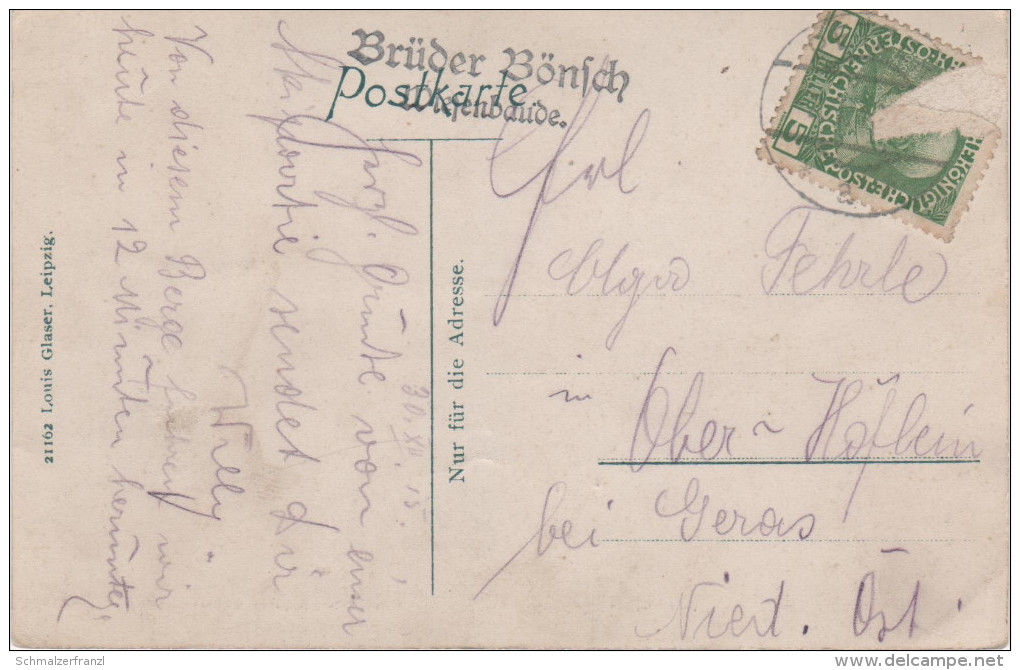 Brüder Bönsch
Wiesenbaude.
Postkarte
5 HELLER 5
30. XII 15.
Herzl. Grüße von einer
Skipartie sendet Dir
Willy
Von diesem Berge fahren wir
heute in 12 Minuten herunter
21162 Louis Glaser, Leipzig.
Nur für die Adresse.
Frl
Olga Fehrle
in
Ober-Höflein
bei Geras
Nied. Öst.
© Schmalzerfranzl
delcampe.net